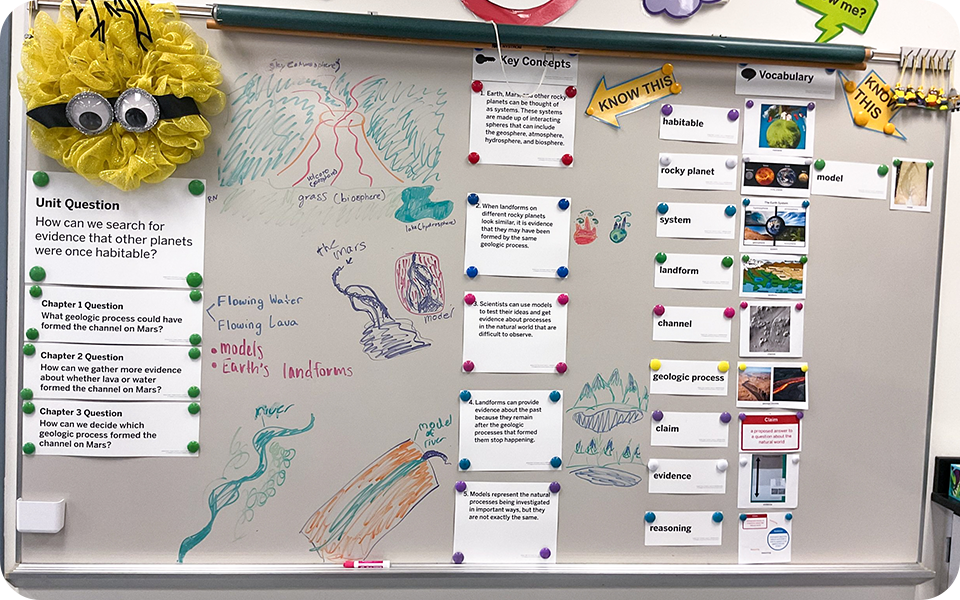 me?
Key Concepts
KNOW THIS
Vocabulary
KNOW
THIS
Unit Question
How can we search for
evidence that other planets
were once habitable?
Chapter 1 Question
What geologic process could have
formed the channel on Mars?
Chapter 2 Question
How can we gather more evidence
about whether lava or water
formed the channel on Mars?
Chapter 3 Question
How can we decide which
geologic process formed the
channel on Mars?
Flowing Water
Flowing Lava
• models
• Earth's landforms
grass (biosphere)
lake (hydrosphere)
mars
model
river
model
river
1. Earth, Mars, and other rocky
planets can be thought of
as systems. These systems
are made up of interacting
spheres that can include
the geosphere, atmosphere,
hydrosphere, and biosphere.
2. When landforms on
different rocky planets
look similar, it is evidence
that they may have been
formed by the same
geologic process.
3. Scientists can use models
to test their ideas and get
evidence about processes
in the natural world that are
difficult to observe.
4. Landforms can provide
evidence about the past
because they remain
after the geologic
processes that formed
them stop happening.
5. Models represent the natural
processes being investigated
in important ways, but they
are not exactly the same.
habitable
rocky planet
model
system
The Earth System
landform
channel
geologic process
claim
Claim
a proposed answer to
a question about the
natural world
evidence
reasoning